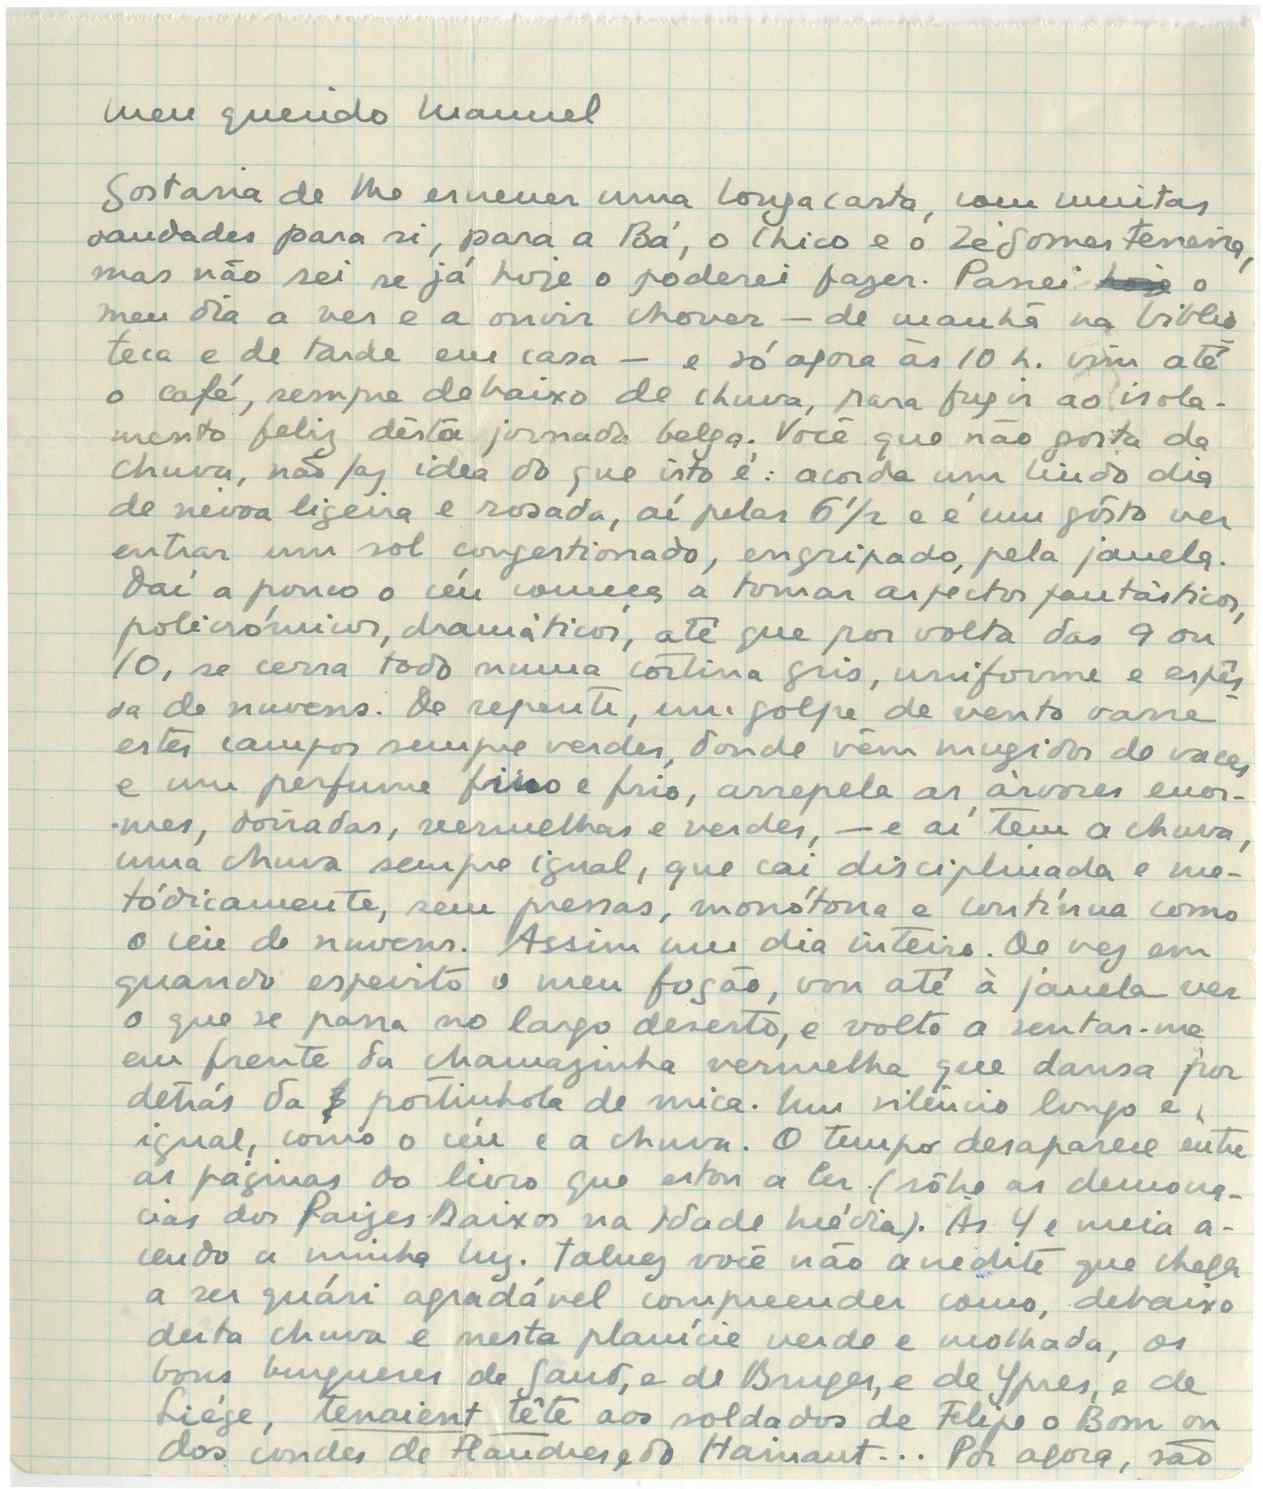 Meu querido Manuel
Gostaria de lhe escrever uma longa carta, com muitas
saudades para si, para a Bá, o Chico e o Zé Gomes Ferreira,
mas não sei se já hoje o poderei fazer. Passei hoje o
meu dia a ver e a ouvir chover — de manhã na biblio
teca e de tarde em casa — e só agora às 10 h. vim até
o café, sempre debaixo de chuva, para fugir ao isola-
mento feliz désta jornada belga. Você que não gosta da
chuva, não faz idea do que isto é: acorda um lindo dia
de nevoa ligeira e rosada, aí pelas 6 1/2 e é um gôsto ver
entrar um sol congestionado, engripado, pela janela.
Daí a pouco o céu começa a tomar aspectos fantásticos,
policrómicos, dramáticos, até que por volta das 9 ou
10, se cerra todo numa cortina gris, uniforme e espês
sa de nuvens. De repente, um golpe de vento varre
estes campos sempre verdes, donde vêm mugidos de vacas
e um perfume fino e frio, arrepela as árvores enor-
mes, doiradas, vermelhas e verdes, — e aí tem a chuva,
uma chuva sempre igual, que cai disciplinada e me-
tódicamente, sem pressas, monótona e contínua como
o céu de nuvens. Assim um dia inteiro. De vez em
quando espevito o meu fogão, vou até à janela ver
o que se passa no largo deserto, e volto a sentar-me
em frente da chamazinha vermelha que dansa por
detrás da portinhola de mica. Um silêncio longo e
igual, como o céu e a chuva. O tempo desaparece entre
as páginas do livro que estou a ler (sôbre as democra-
cias dos Paizes Baixos na Idade Média). Às 4 e meia a-
cendo a minha luz. Talvez você não acredite que chega
a ser quási agradável compreender como, debaixo
desta chuva e nesta planície verde e molhada, os
bons burgueses de Gand, e de Bruges, e de Ypres, e de
Liége, tenaient tête aos soldados de Felipe o Bom ou
dos condes de Flandres e do Hainaut... Por agora, são